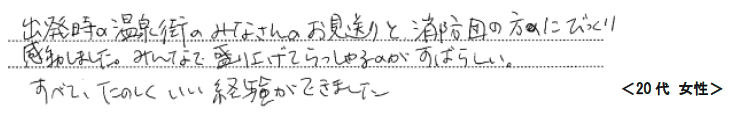 出発時の温泉街のみなさんのお見送りと消防団の方々にびっくり
感動しました。みんなで盛り上げてらっしゃるのがすばらしい。
すべて、たのしくいい経験ができました
<20代 女性>